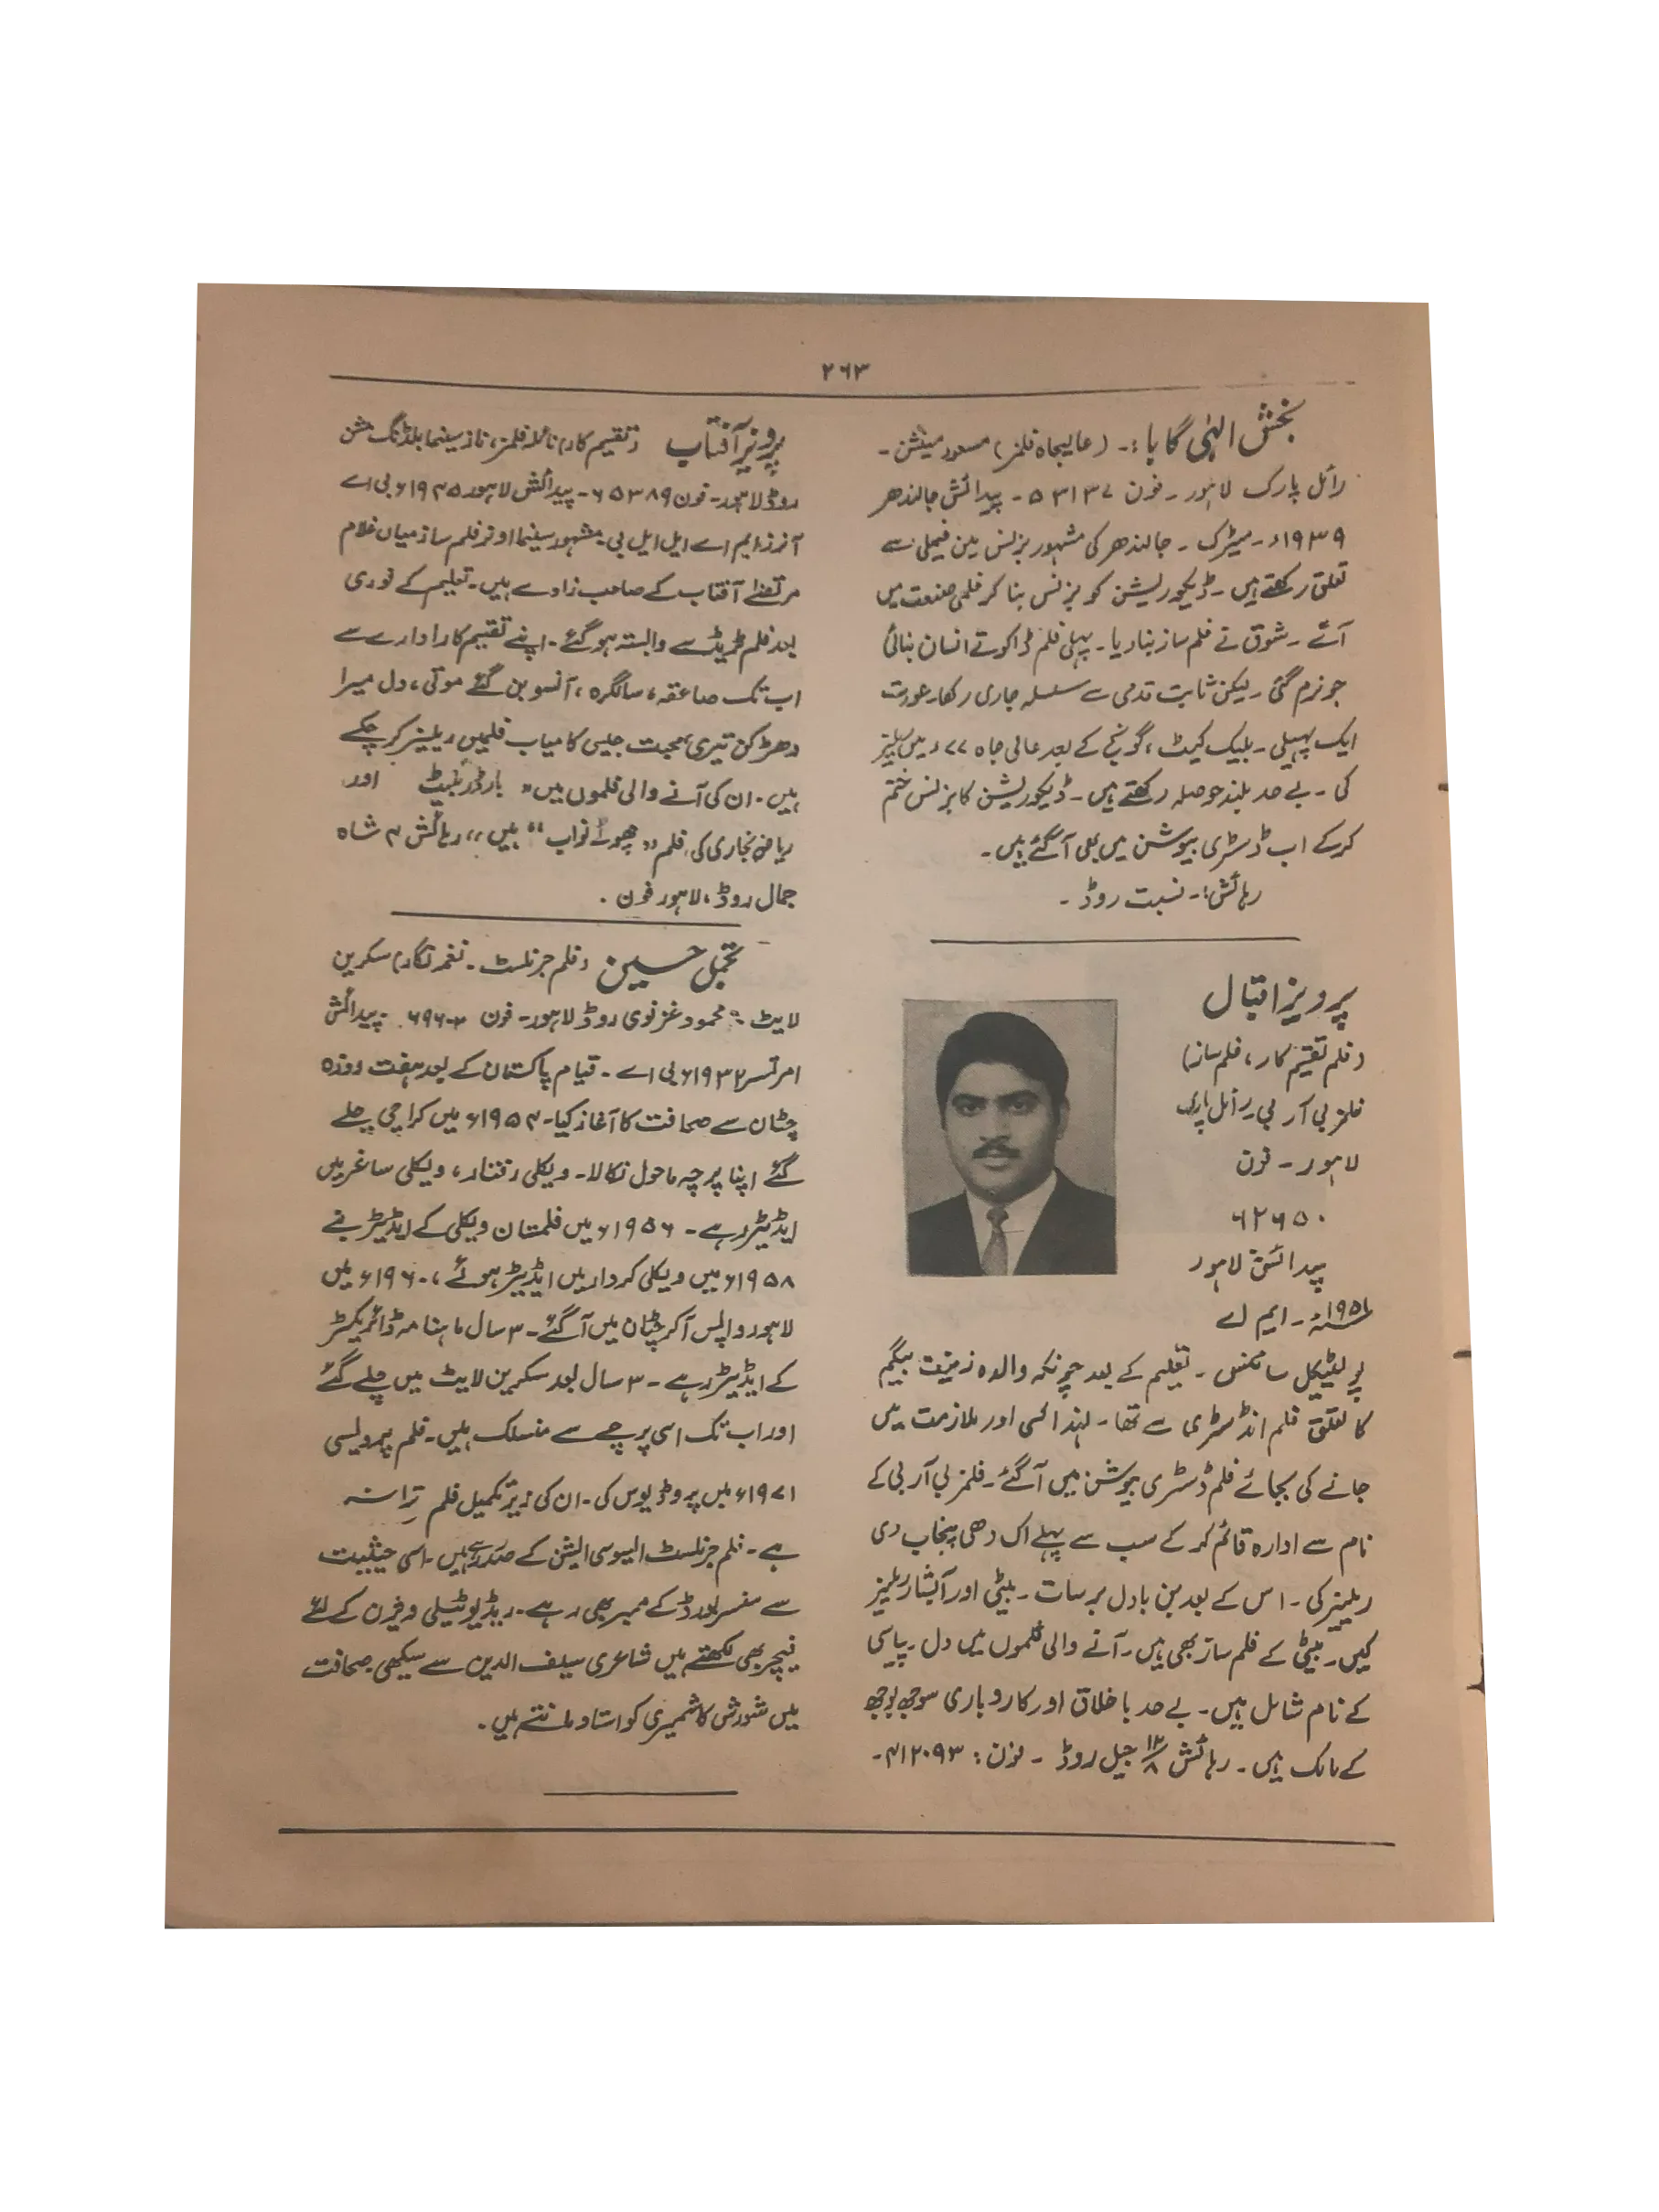 ۲۶۳
بخش الہٰی گابا:۔ (عالیجاہ فلمز) مسعود مینشن۔
رائل پارک لاہور۔ فون ۵۳۱۳۷۔ پیدائش جالندھر
۱۹۳۹ء۔ میٹرک۔ جالندھر کی مشہور بزنس مین فیملی سے
تعلق رکھتے ہیں۔ ڈیکوریشن کو بزنس بنا کر فلمی صنعت میں
آئے۔ شوق نے فلمساز بنا دیا۔ پہلی فلم ڈاکو تے انسان بنائی
جو نرم گئی۔ لیکن ثابت قدمی سے سلسلہ جاری رکھا۔ عورت
ایک پہیلی۔ بلیک کیٹ، گونج کے بعد عالی جاہ ۷۷ء میں ریلیز
کی۔ بے حد بلند حوصلہ رکھتے ہیں۔ ڈیکوریشن کا بزنس ختم
کرکے اب ڈسٹری بیوشن میں بھی آ گئے ہیں۔
رہائش:۔ نسبت روڈ۔
پرویز اقبال
(فلم تقسیم کار، فلمساز)
فلمز بی آر بی۔ رائل پارک
لاہور۔ فون
۶۲۶۵۰
پیدائش لاہور
۱۹۵۱ء۔ ایم اے
پولیٹیکل سائنس۔ تعلیم کے بعد چونکہ والدہ زینت بیگم
کا تعلق فلم انڈسٹری سے تھا۔ لہٰذا کسی اور ملازمت میں
جانے کی بجائے فلم ڈسٹری بیوشن میں آ گئے۔ فلمز بی آر بی کے
نام سے ادارہ قائم کر کے سب سے پہلے اک دھی پنجاب دی
ریلیز کی۔ اس کے بعد بن بادل برسات۔ بیٹی اور آبشار ریلیز
کیں۔ بیٹی کے فلمساز بھی ہیں۔ آنے والی فلموں میں دل۔ پیاسی
کے نام شامل ہیں۔ بے حد با خلاق اور کاروباری سوجھ بوجھ
کے مالک ہیں۔ رہائش ۱۲/۸ جیل روڈ۔ فون: ۴۱۲۰۹۳۔
پرویز آفتاب (تقسیم کار) نائلہ فلمز، ناز سینما بلڈنگ مشن
روڈ لاہور۔ فون ۶۵۳۸۹۔ پیدائش لاہور ۱۹۴۵ء بی اے
آنرز ایم اے ایل ایل بی۔ مشہور سینما اونر فلمساز میاں غلام
مرتضےٰ آفتاب کے صاحب زادے ہیں۔ تعلیم کے فوری
بعد فلم ٹریڈ سے وابستہ ہو گئے۔ اپنے تقسیم کار ادارے سے
اب تک صاعقہ، سالگرہ، آنسو بن گئے موتی، دل میرا
دھڑکن تیری، محبت جیسی کامیاب فلمیں ریلیز کر چکے
ہیں۔ ان کی آنے والی فلموں میں "بارڈر بُلیٹ اور
ریاض بخاری کی فلم "چھوٹے نواب" ہیں،، رہائش ۴ شاہ
جمال روڈ، لاہور فون ۔
تجمل حسین (فلم جرنلسٹ۔ نغمہ نگار) سکرین
لایٹ۔ محمود غزنوی روڈ لاہور۔ فون پیدائش
امرتسر ۱۹۳۲ء بی اے۔ قیام پاکستان کے بعد ہفت روزہ
چٹان سے صحافت کا آغاز کیا۔ ۱۹۵۴ء میں کراچی چلے
گئے اپنا پرچہ ماحول نکالا۔ ویکلی رفتار، ویکلی ساغر میں
ایڈیٹر رہے۔ ۱۹۵۶ء میں فلمستان ویکلی کے ایڈیٹر بنے
۱۹۵۸ء میں ویکلی کردار میں ایڈیٹر ہوئے، ۱۹۶۰ء میں
لاہور واپس آ کر چٹان میں آ گئے۔ ۳ سال ماہنامہ ڈائریکٹر
کے ایڈیٹر رہے۔ ۳ سال بعد سکرین لایٹ میں چلے گئے
اور اب تک اسی پرچے سے منسلک ہیں۔ فلم پردیسی
۱۹۷۱ء میں پروڈیوس کی۔ ان کی زیر تکمیل فلم ترانہ
ہے۔ فلم جرنلسٹ ایسوسی ایشن کے صدر رہے ہیں۔ اسی حیثیت
سے سنسر بورڈ کے ممبر بھی رہے۔ ریڈیو ٹیلی ویژن کے لئے
فیچر بھی لکھتے ہیں شاعری سیف الدین سے سیکھی۔ صحافت
میں شورش کاشمیری کو استاد مانتے ہیں۔